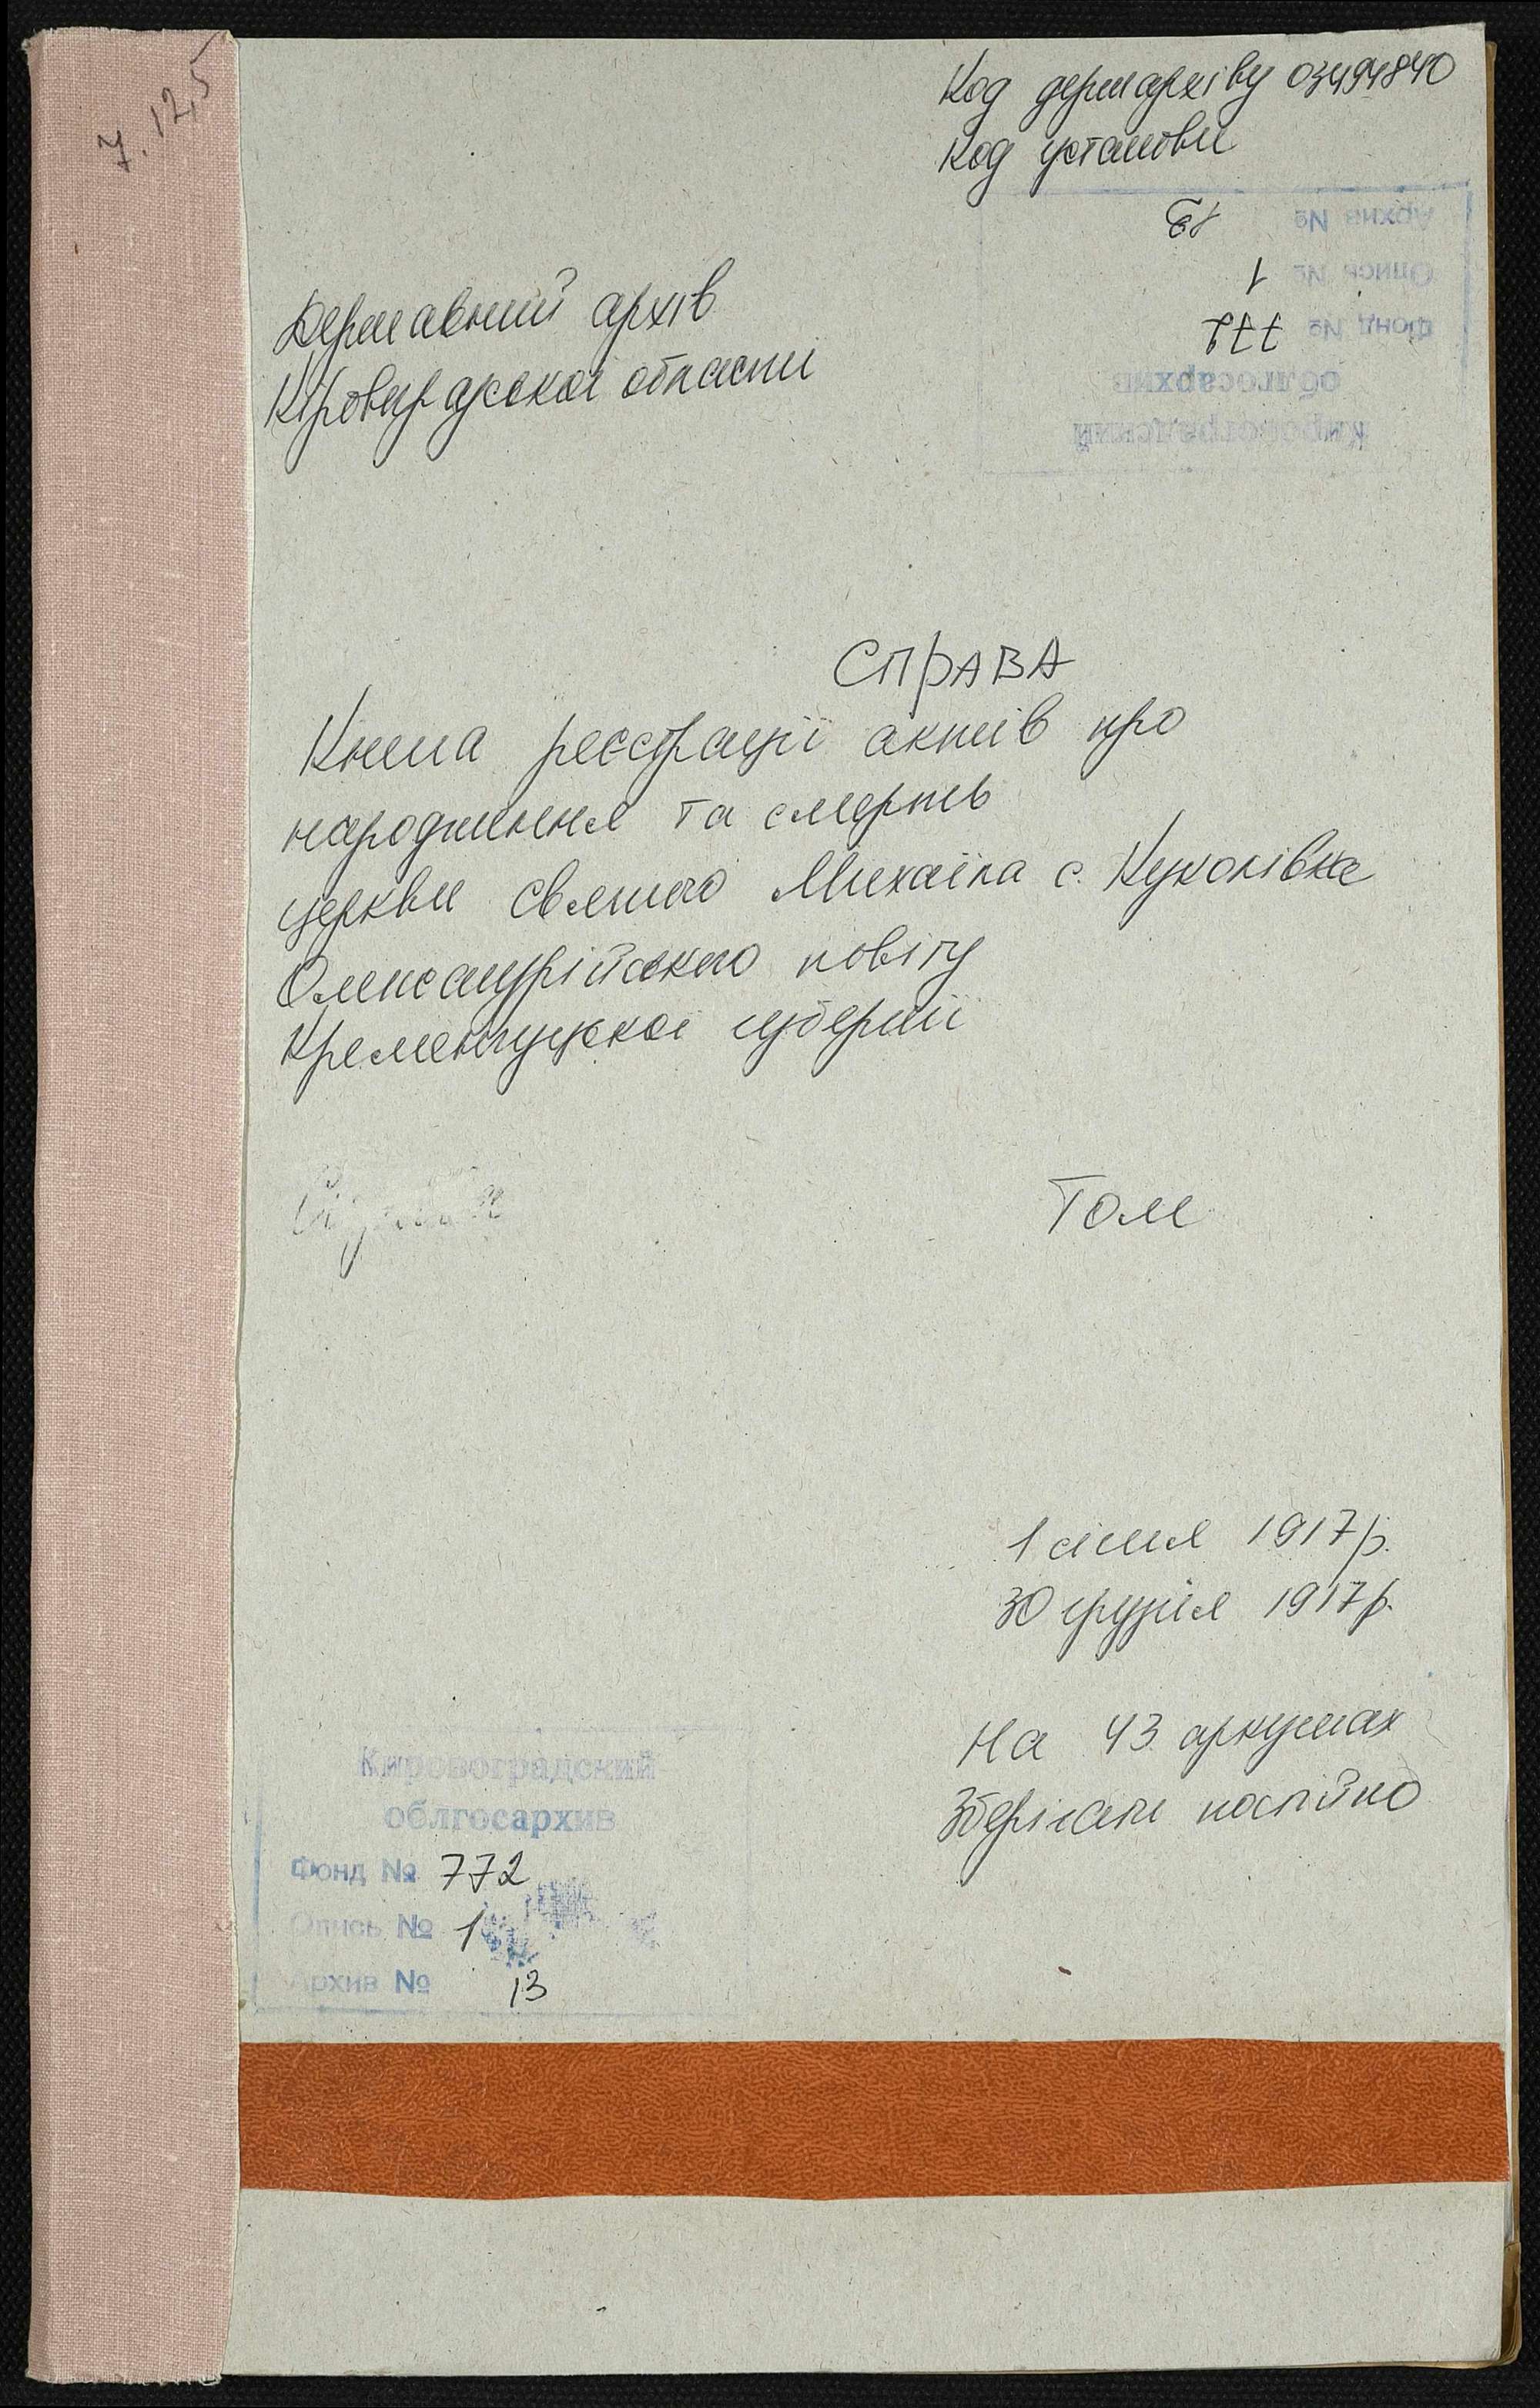 7.125
Код держархіву 03494840
Код установи
Архив № 13
Опись № 1
Фонд № 772
облгосархив
Кировоградский
Державний архів
Кіровоградської області
СПРАВА
Книга реєстрації актів про
народження та смерть
церкви святого Михаїла с. Куколівка
Олександрійського повіту
Кременчуцької губернії
Том
1 січня 1917 р.
30 грудня 1917 р.
На 43 аркушах
Зберігати постійно
Кировоградский
облгосархив
Фонд № 772
Опись № 1
Архив № 13